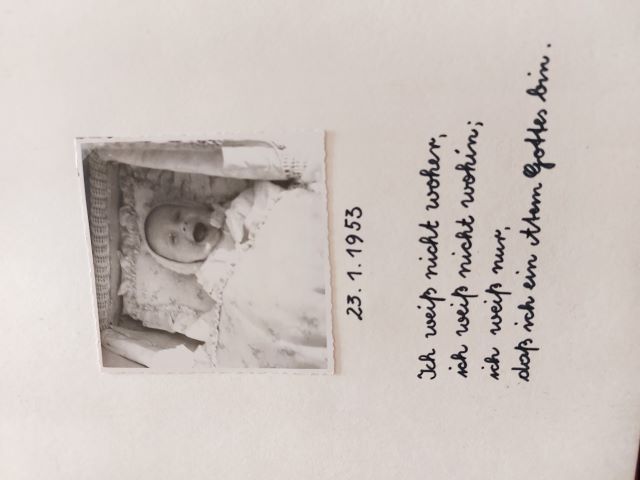 23.1.1953
Ich weiß nicht woher,
ich weiß nicht wohin;
ich weiß nur,
daß ich ein Atem Gottes bin.